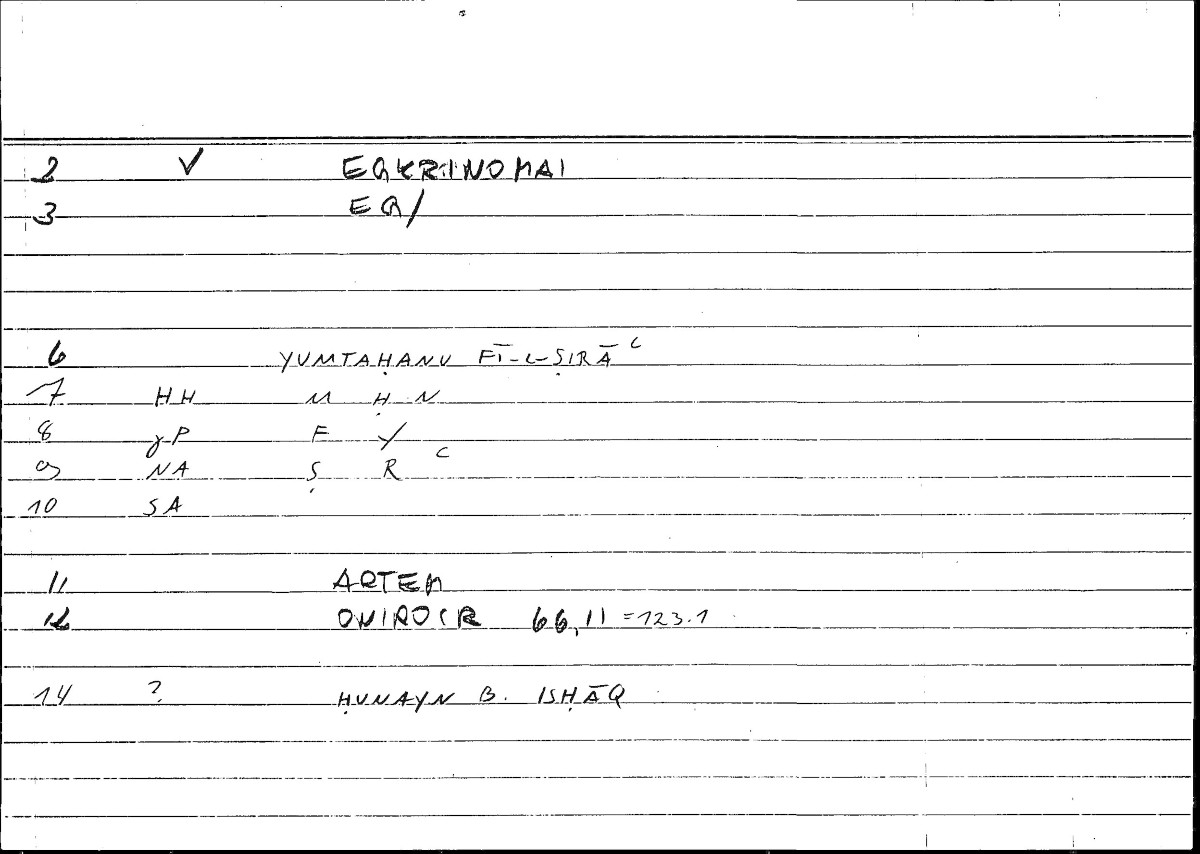 2 V EQKRINOMAI
3 EQ/
6 YUMTAḤANU FĪ-L-ṢIRĀ ʿ
7 HH M Ḥ N
8 γP F Y
9 NA Ṣ R ʿ
10 SA
11 ARTEM
12 ONIROCR 66,11 =123.1
14 ? ḤUNAYN B. ISḤĀQ